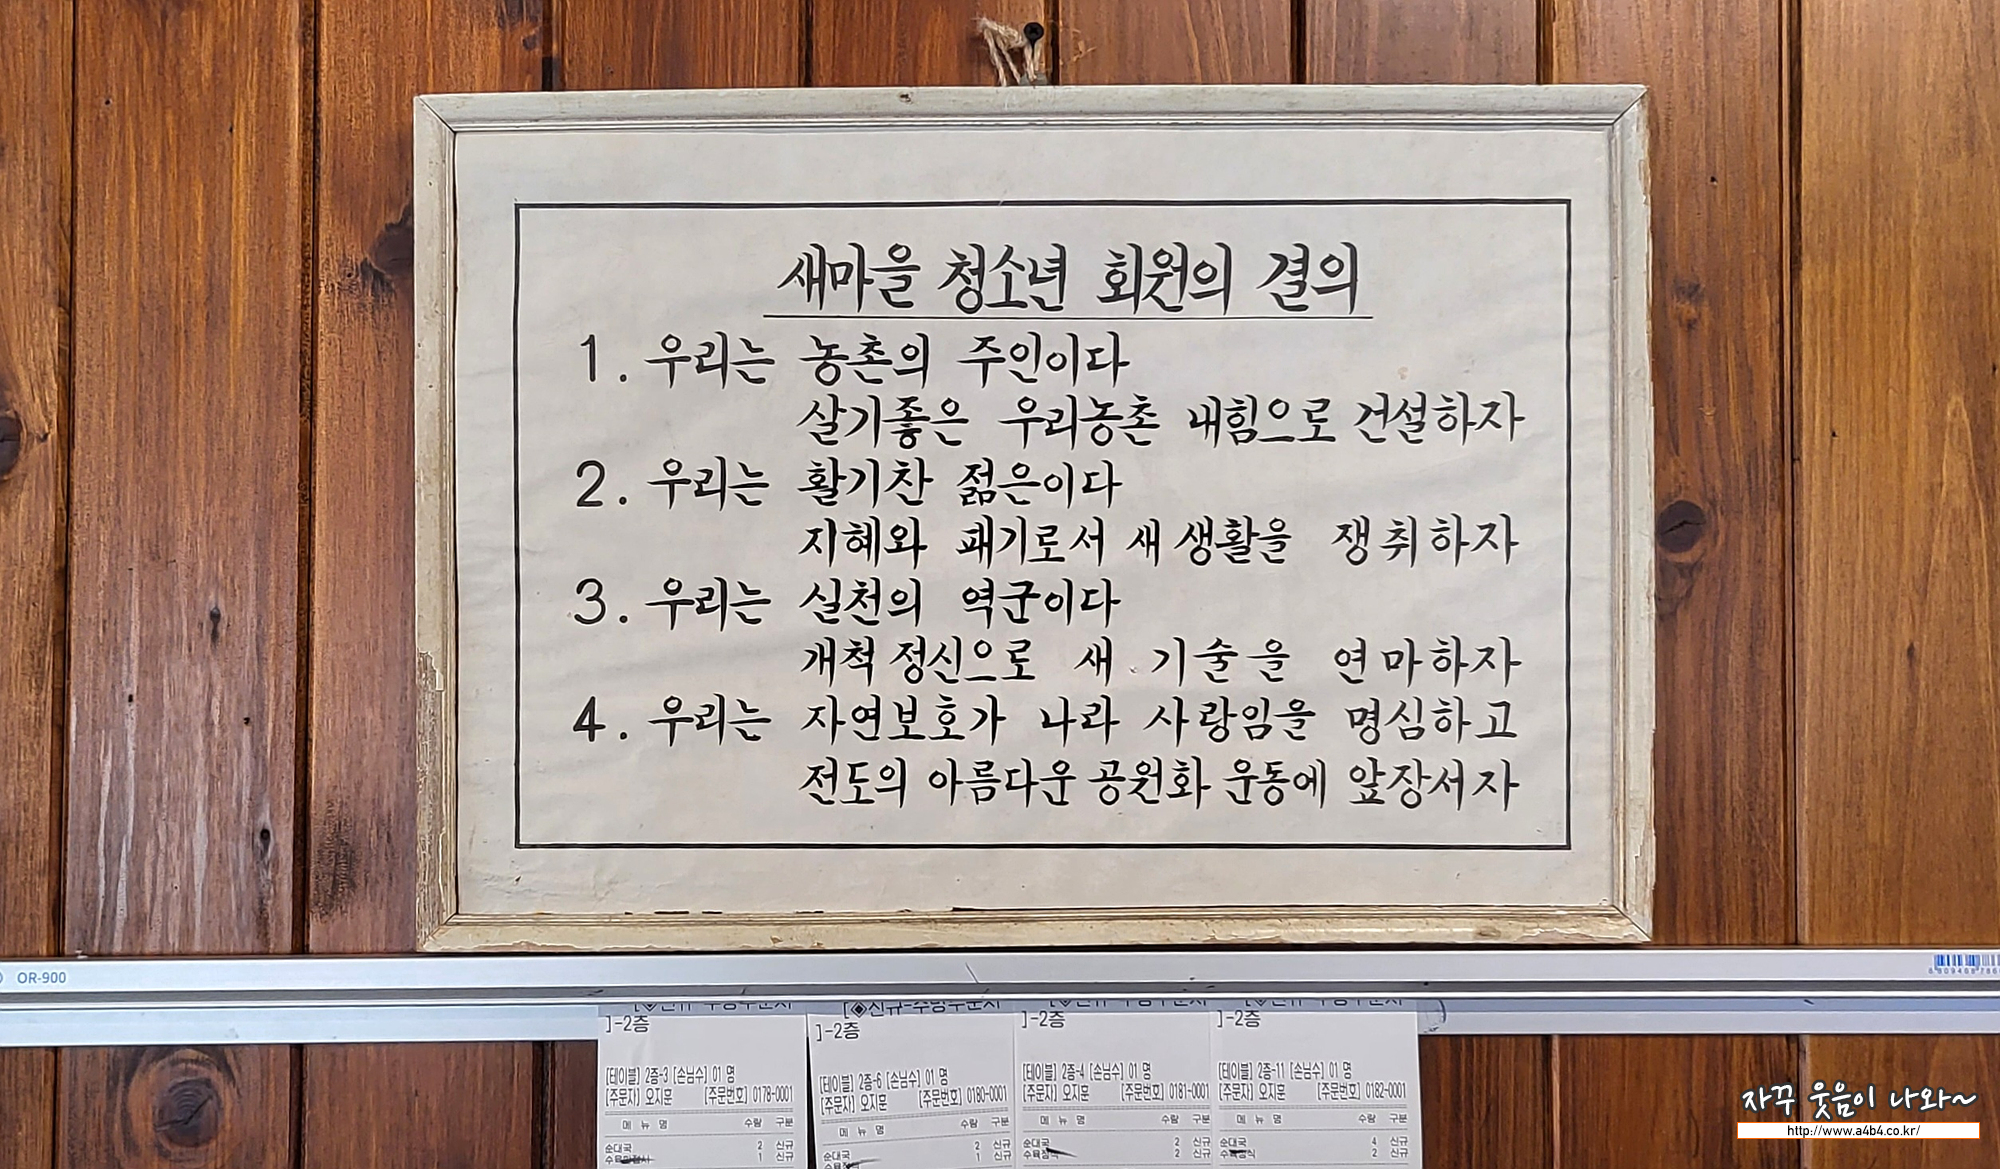 새마을 청소년 회원의 결의
1. 우리는 농촌의 주인이다
살기좋은 우리농촌 내힘으로 건설하자
2. 우리는 활기찬 젊은이다
지혜와 패기로서 새생활을 쟁취하자
3. 우리는 실천의 역군이다
개척정신으로 새 기술을 연마하자
4. 우리는 자연보호가 나라 사랑임을 명심하고
전도의 아름다운 공원화 운동에 앞장서자
OR-900
]-2층
[테이블] 2층-3 [손님수] 01 명
[주문자] 오지훈 [주문번호] 0178-0001
메 뉴 명 수량 구분
순대국 2 신규
1 신규
[◈신규-주방주문서
]-2층
[테이블] 2층-6 [손님수] 01 명
[주문자] 오지훈 [주문번호] 0180-0001
메 뉴 명 수량 구분
순대국 2 신규
1 신규
]-2층
[테이블] 2층-4 [손님수] 01 명
[주문자] 오지훈 [주문번호] 0181-0001
메 뉴 명 수량 구분
순대국 2 신규
2 신규
]-2층
[테이블] 2층-11 [손님수] 01 명
[주문자] 오지훈 [주문번호] 0182-0001
메 뉴 명 수량 구분
순대국 4 신규
2 신규
자꾸 웃음이 나와~
http://www.a4b4.co.kr/